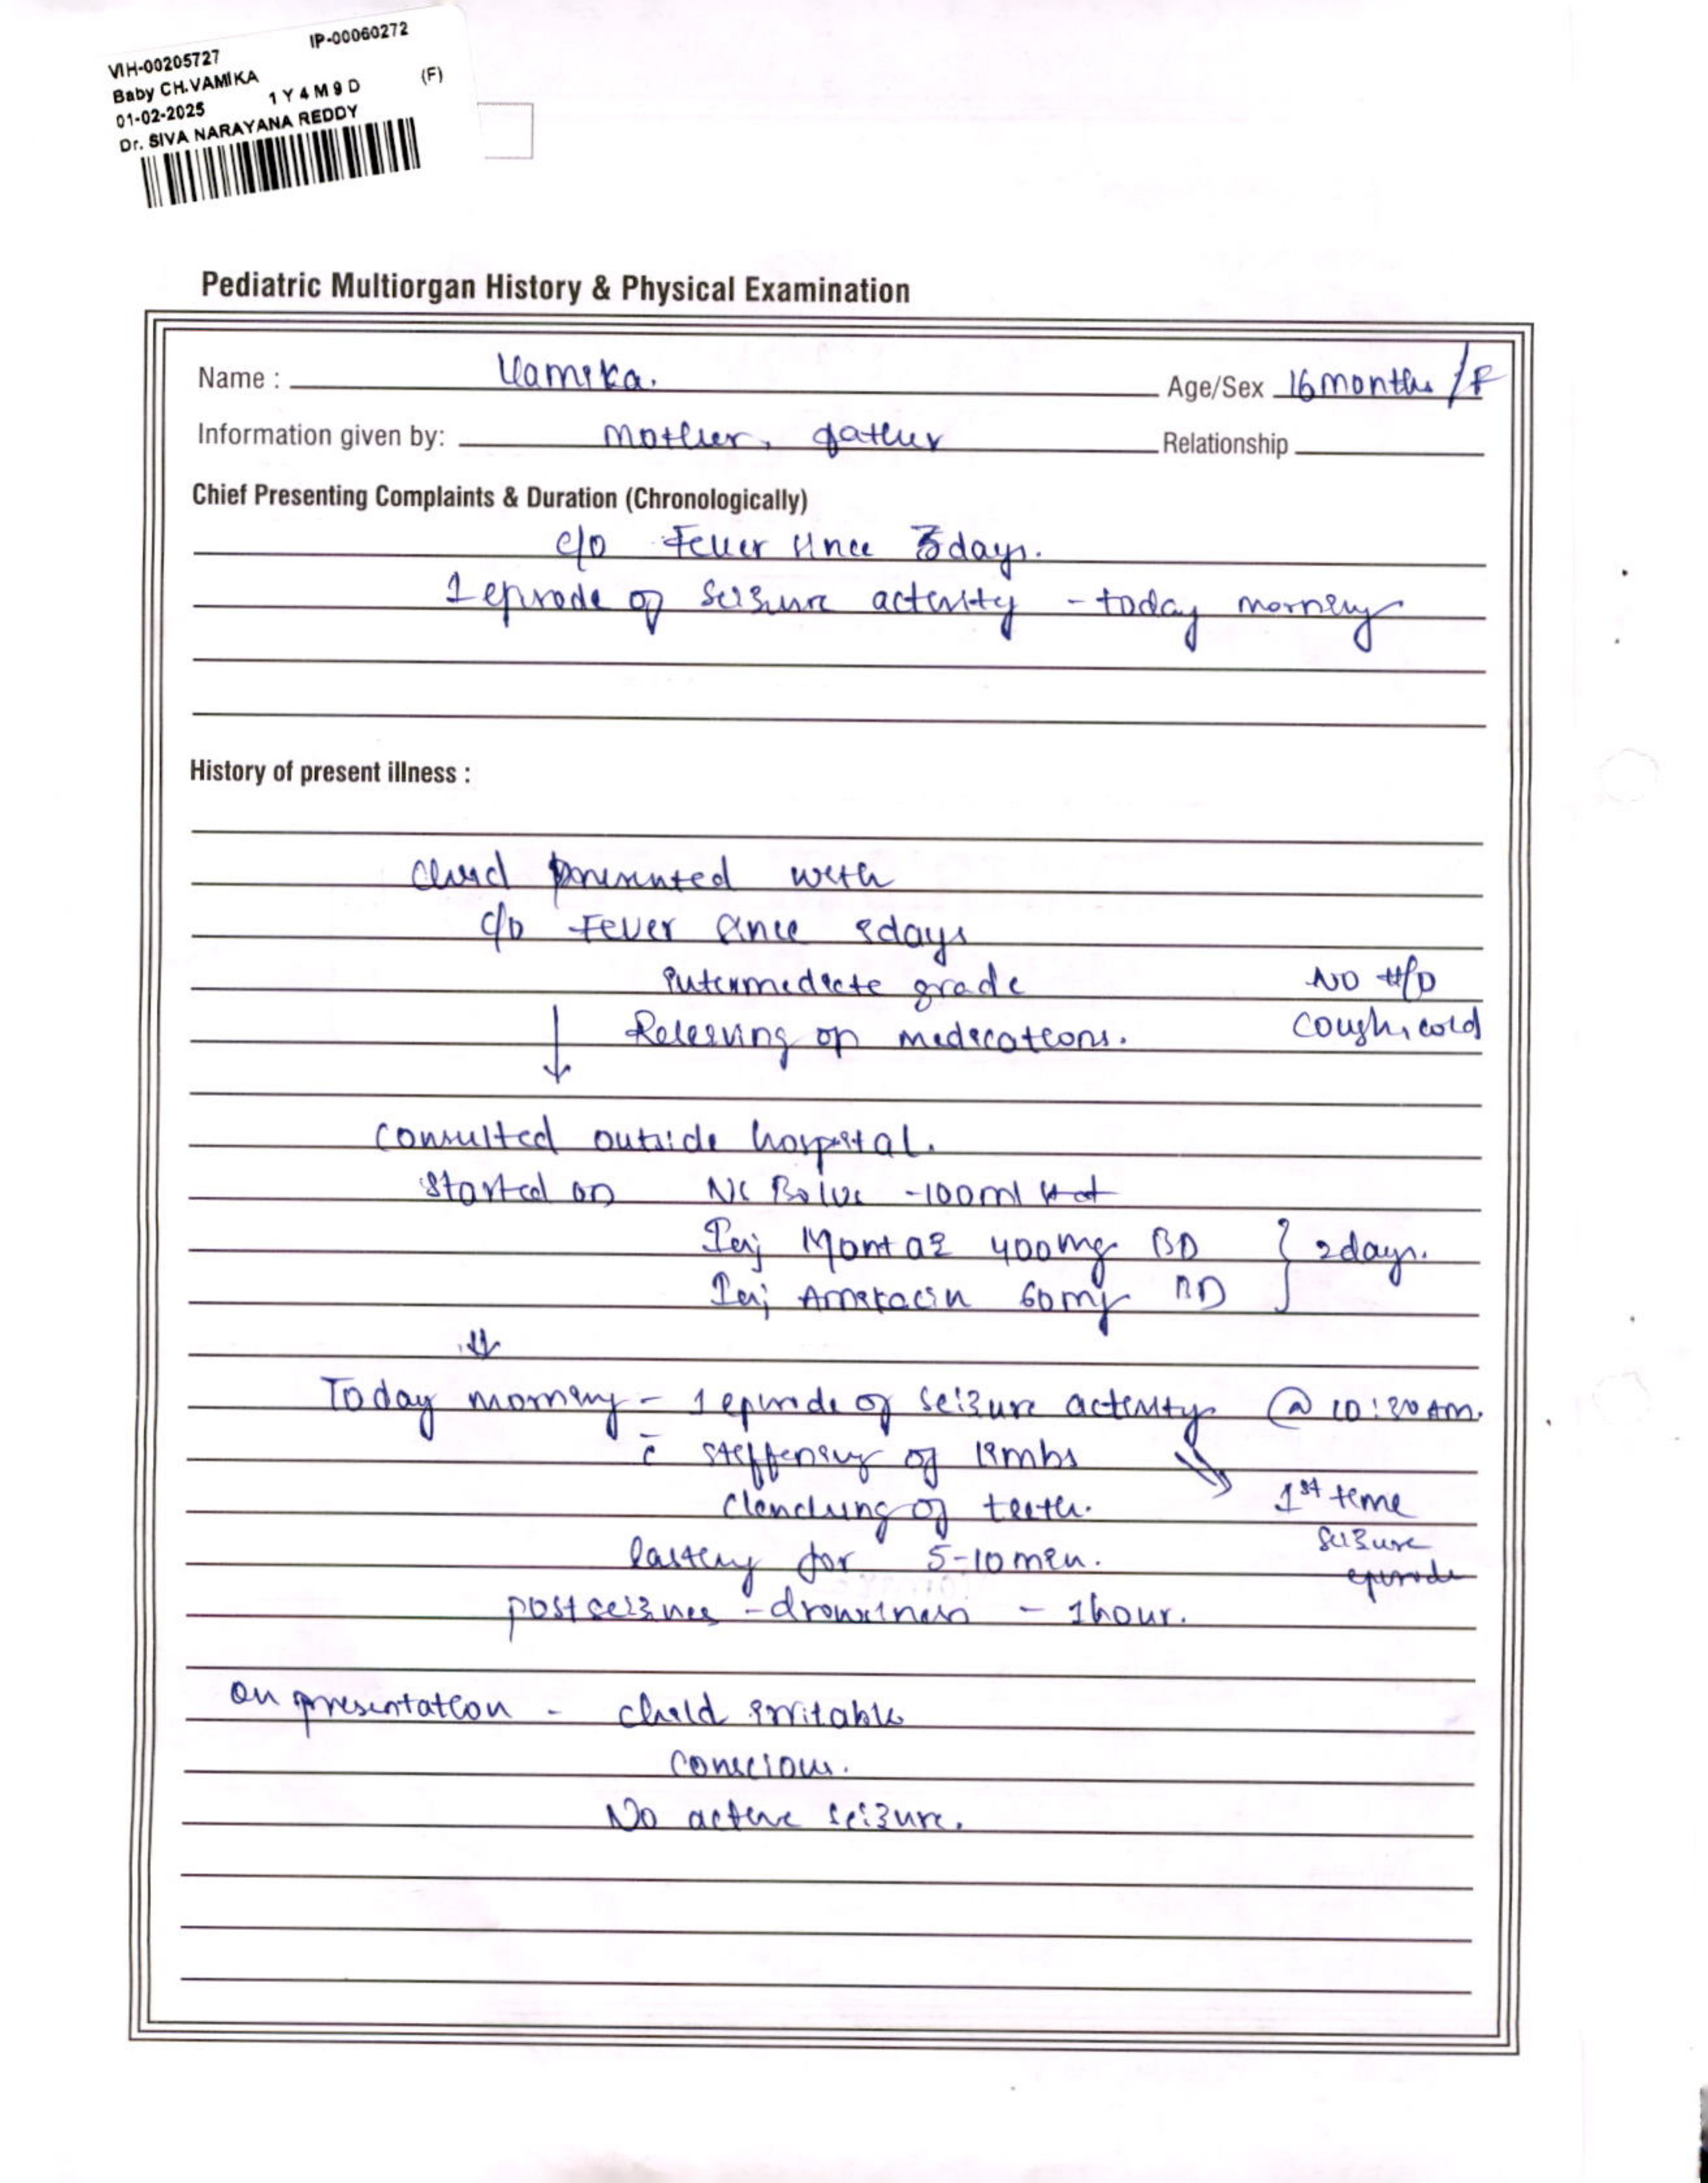 VIH-00205727 IP-00060272
Baby CH.VAMIKA (F)
01-02-2025 1 Y 4 M 9 D
Dr. SIVA NARAYANA REDDY
Pediatric Multiorgan History & Physical Examination
Name : Vamika. Age/Sex 16 months / F
Information given by: Mother, father Relationship
Chief Presenting Complaints & Duration (Chronologically)
c/o Fever since 3 days.
1 episode of seizure activity - today morning
History of present illness :
Child presented with
c/o Fever since 3 days
intermediate grade NO H/O
Relieving on medications. cough, cold
consulted outside hospital.
started on NS Bolus - 100ml
Inj Montaz 400mg BD } 2 days.
Inj Amikacin 60mg BD
Today morning - 1 episode of seizure activity @ 10:30 AM.
c̄ stiffening of limbs
clenching of teeth. 1st time
seizure
lasting for 5-10 min. episode
post seizures - drowsiness - 1 hour.
on presentation - child irritable
conscious.
No active seizure.